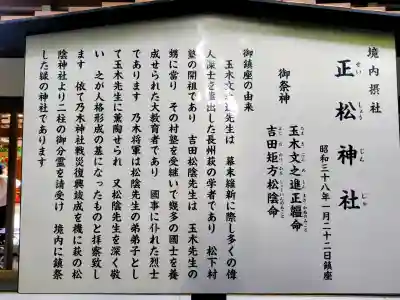 境内摂社
正松神社
せい しょう じん じゃ
昭和三十八年一月二十二日鎮座
御祭神
玉木文之進正韞命
吉田矩方松陰命
御鎮座の由来
玉木文之進先生は 幕末維新に際し多くの偉
人傑士を輩出した長州萩の学者であり 松下村
塾の開祖であり 吉田松陰先生は 玉木先生の
甥に當り その村塾を受継いで幾多の國士を養
成せられた大教育者であり 國事に仆れた烈士
であります 乃木将軍は松陰先生の弟弟子とし
て玉木先生に薫陶せられ 又松陰先生を深く敬
い 之が人格形成の基になったものと拝察致し
ます 依て乃木神社戦災復興竣成を機に萩の松
陰神社より二柱の御分霊を請受け 境内に鎮祭
した縁の神社であります